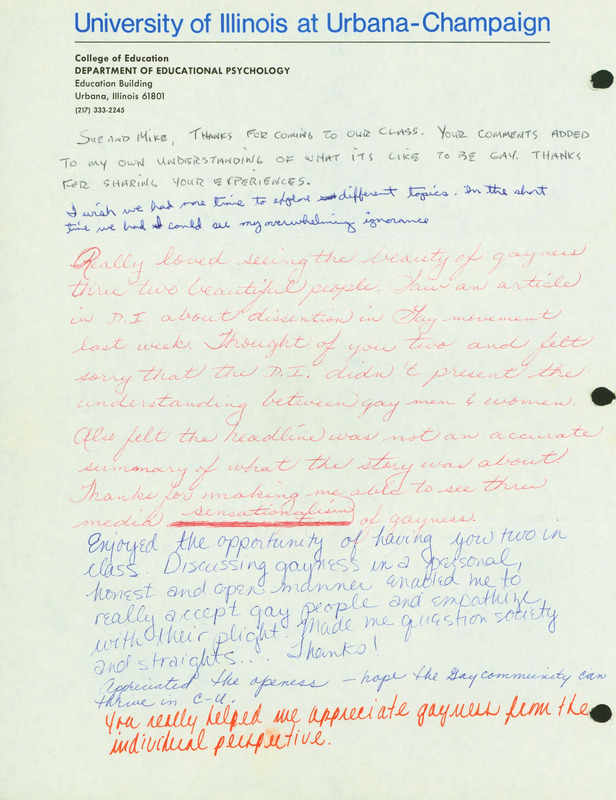 University of Illinois at Urbana-Champaign
College of Education
DEPARTMENT OF EDUCATIONAL PSYCHOLOGY
Education Building
Urbana, Illinois 61801
(217) 333-2245
SUE AND MIKE, THANKS FOR COMING TO OUR CLASS. YOUR COMMENTS ADDED
TO MY OWN UNDERSTANDING OF WHAT ITS LIKE TO BE GAY. THANKS
FOR SHARING YOUR EXPERIENCES.
I wish we had more time to explore different topics. In the short
time we had I could see my overwhelming ignorance
Really loved seeing the beauty of gayness
thru two beautiful people. Saw an article
in D.I. about dissention in Gay movement
last week. Thought of you two and felt
sorry that the D.I. didn't present the
understanding between gay men & women.
Also felt the headline was not an accurate
summary of what the story was about.
Thanks for making me able to see thru
media sensationalism of gayness.
Enjoyed the opportunity of having you two in
class. Discussing gayness in a personal,
honest and open manner enabled me to
really accept gay people and empathize
with their plight. Made me question society
and straights.... Thanks!
Appreciated the openess – hope the Gay community can
thrive in C-U.
You really helped me appreciate gayness from the
individual perspective.